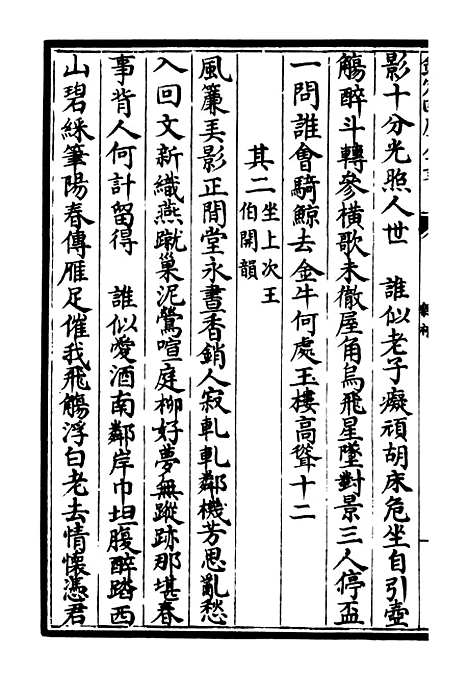 影十分光照人世　誰似老子癡頑胡床危坐自引壺
觴醉斗轉參橫歌未徹屋角烏飛星墜對景三人停盃
一問誰會騎鯨去金牛何處玉樓高聳十二
其二坐上次王伯開韻
風簾弄影正閒堂永晝香銷人寂軋軋鄰機芳思亂愁
入回文新織燕蹴巢泥鶯喧庭柳好夢無蹤跡那堪春
事背人何計留得　誰似愛酒南鄰岸巾坦腹醉踏西
山碧綵筆陽春傳雁足催我飛觴浮白老去情懷憑君